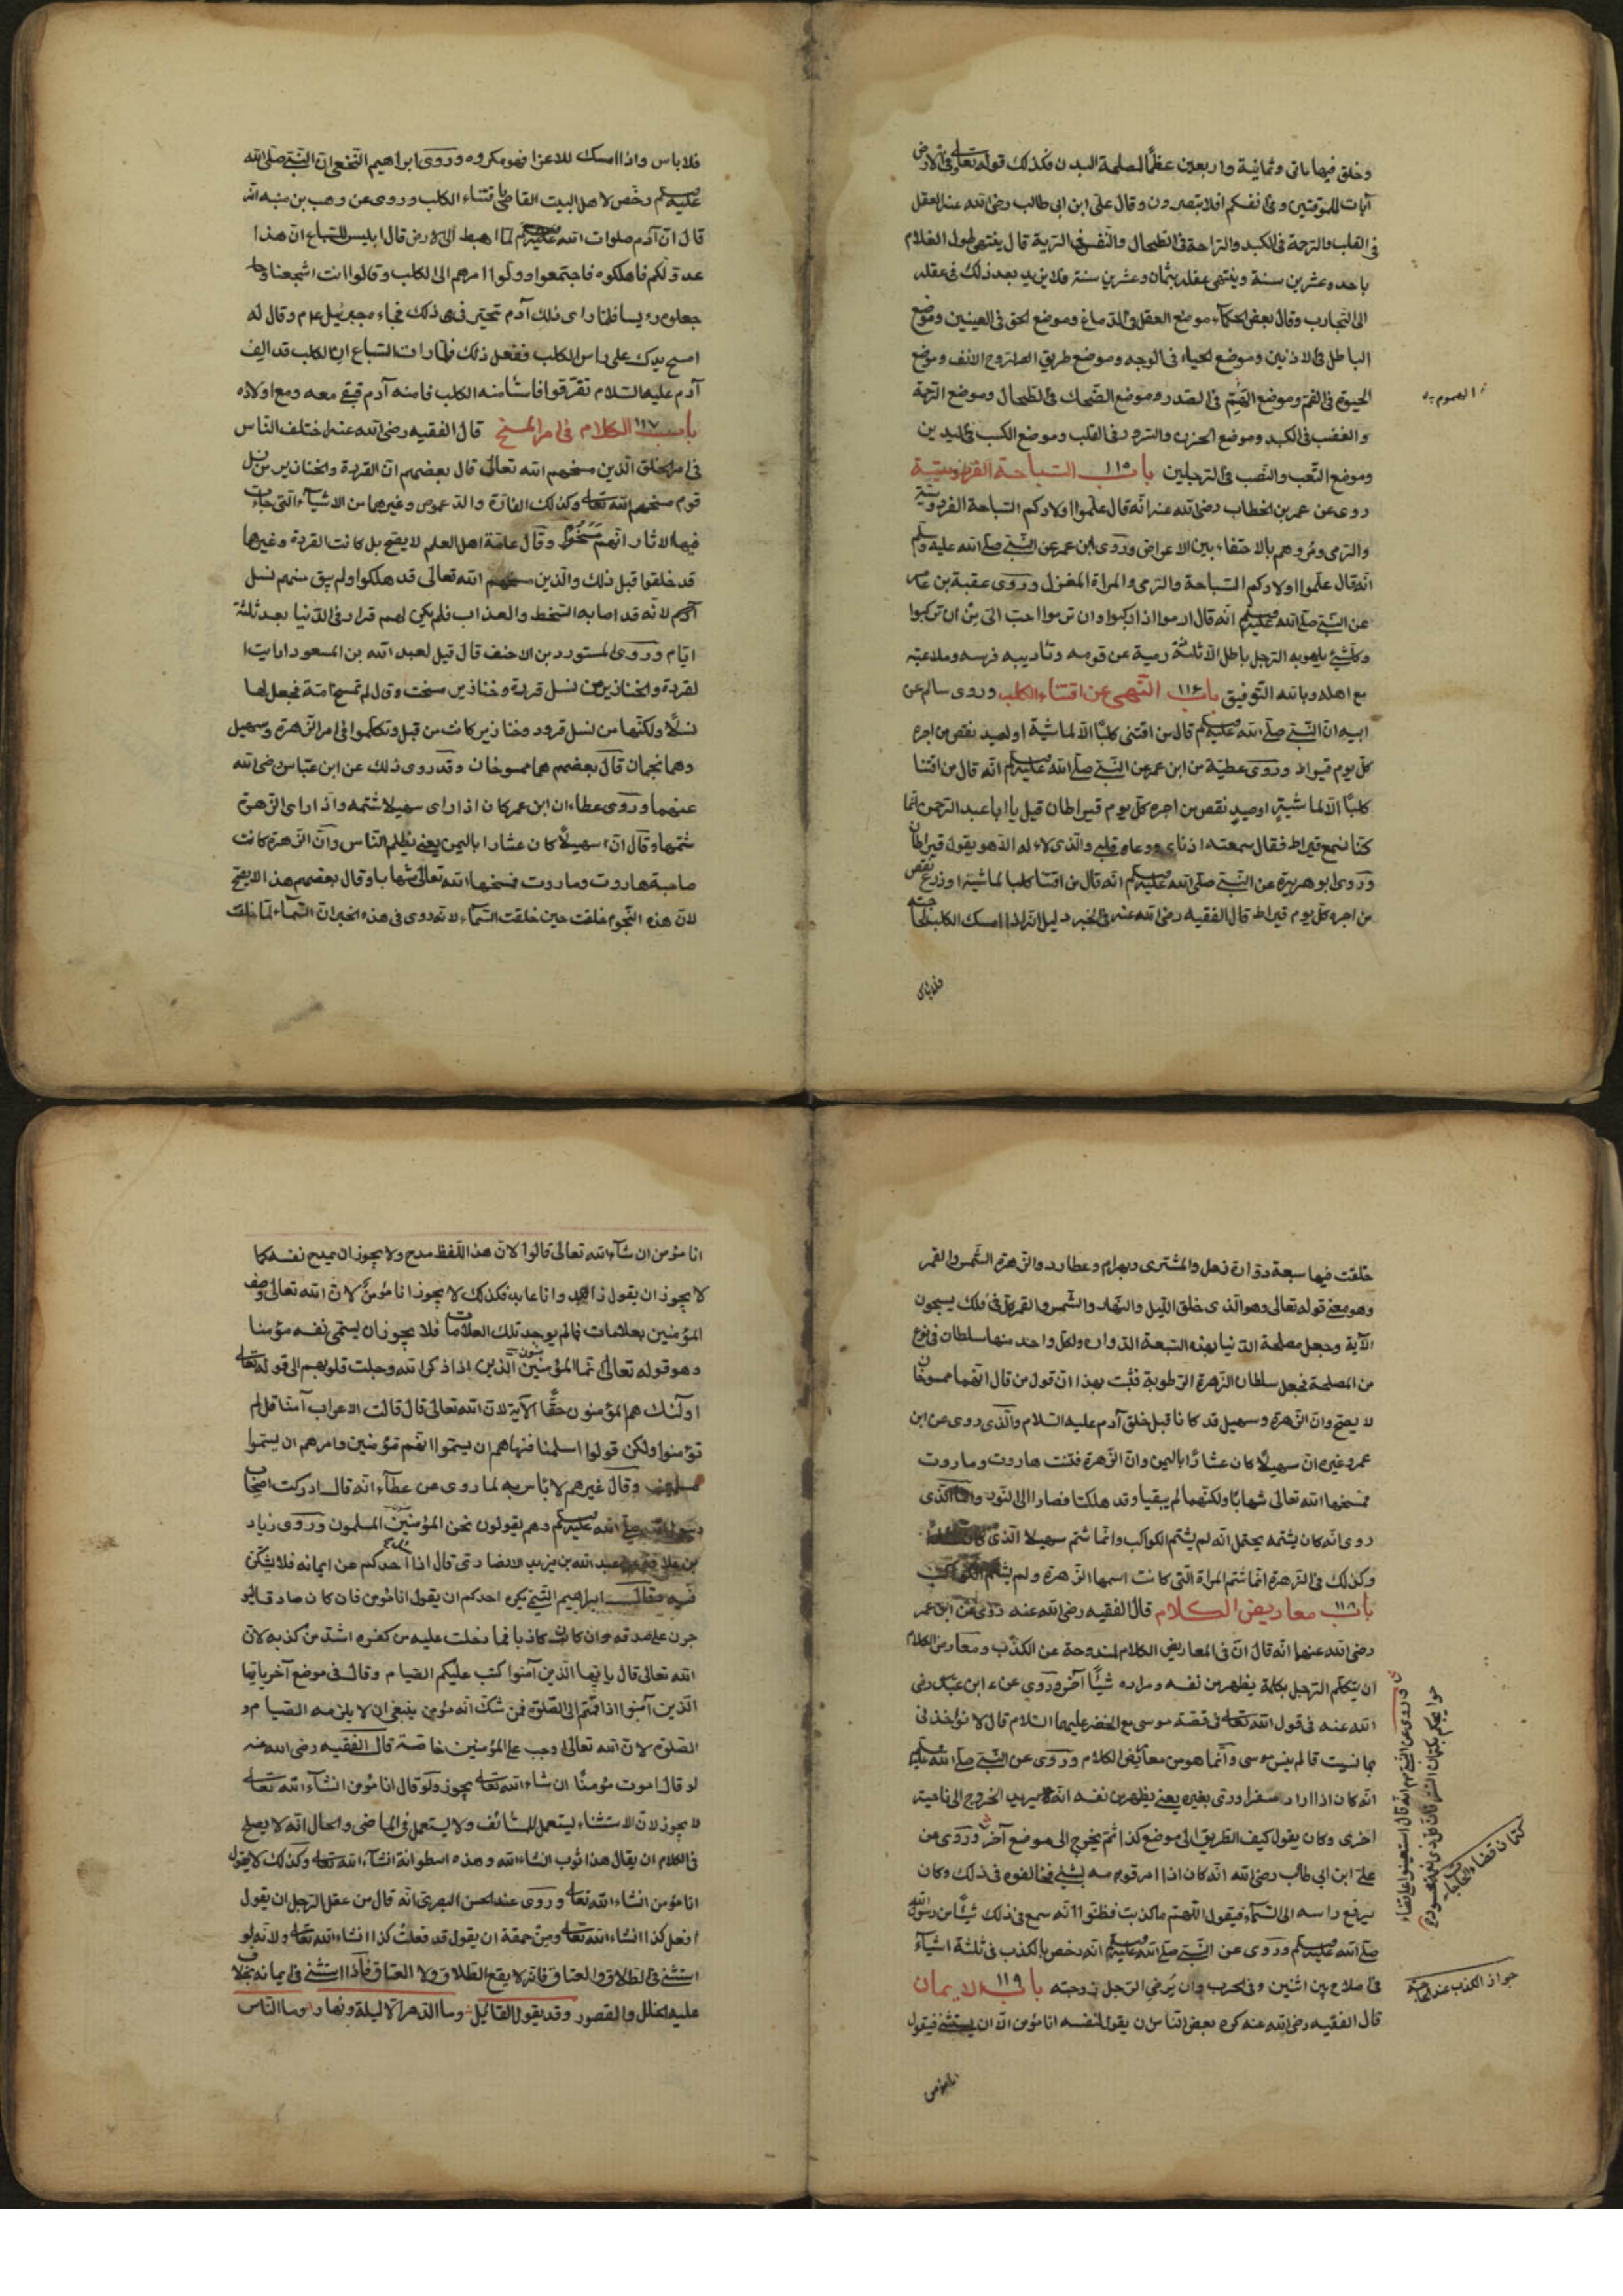 وخلق فيها مائتى وثمانية واربعين عظما لمصلحة البدن فكذلك قوله تعالى وفى الارض
آيات للموقنين وفى انفسكم افلا تبصرون وقال على ابن ابى طالب رضى الله عنه العقل
فى القلب والرحمة فى الكبد والراحة فى الطحال والنفس فى الرية قال ينتهى طول الغلام
باحده عشرين سنة وينتهى عقله بثمان وعشرين سنة فلا يزيد بعد ذلك فى عقله
الى التجارب وقال بعض الحكماء موضع العقل فى الدماغ وموضع الحق فى العينين وموضع
الباطل فى الاذنين وموضع الحياء فى الوجه وموضع طريق الروح الانف وموضع
الحيوة فى الفم وموضع الهم فى الصدر وموضع الضحك فى الطحال وموضع الرحمة
والغضب فى الكبد وموضع الحزن والسرور فى القلب وموضع الكسب فى اليدين
وموضع التعب والنصب فى الرجلين باب ١١٥ السباحة الفروسية
روى عن عمر بن الخطاب رضى الله عنه انه قال علموا اولادكم السباحة الفروسية
والرمى ومروهم بالاحتفاء بين الاعراض وروى ابن عمر عن النبى صلى الله عليه وسلم
انه قال علموا اولادكم السباحة والرمى والمراة المغزل وروى عقبة بن عامر
عن النبى صلى الله عليه وسلم انه قال ارموا اذا ركبوا وان ترموا احب الى من ان تركبوا
وكل شيئ يلهو به الرجل باطل الا ثلثة رمية عن قوسه وتأديبه فرسه وملاعبته
مع اهله وبالله التوفيق باب ١١٦ النهى عن اقتناء الكلب وروى سالم عن
ابيه ان النبى صلى الله عليه وسلم قال من اقتنى كلبا الا لماشية او لصيد نقص من اجره
كل يوم قيراط وروى عطية من ابن عمر عن النبى صلى الله عليه وسلم انه قال من اقتنا
كلبا الا لماشية او صيد نقص من اجره كل يوم قيراطان قيل يا ابا عبد الرحمن انما
كنا نسمع قيراط فقال سمعته اذناى ووعاه قلبى والذى لا اله الا هو يقول قيراطان
وروى ابو هريرة عن النبى صلى الله عليه وسلم انه قال من اقتنا كلبا لماشية او زرع نقص
من اجره كل يوم قيراط قال الفقيه رضى الله عنه فى الخبر دليل انه اذا امسك الكلب لحاجته
فلا باس
فلا باس واذا امسك للاعزا فهو مكروه وروى ابراهيم النخعى ان النبى صلى الله
عليه وسلم رخص لاهل البيت القاصى باقتناء الكلب وروى عن وهب بن منبه انه
قال ان آدم صلوات الله عليه وسلم لما اهبط الى الارض قال ابليس للسباع ان هذا
عدو لكم فاهلكوه فاجتمعوا وولوا امرهم الى الكلب وقالوا انت اشجعنا
جعلوه رئيسا فلما راى ذلك آدم تحير فى ذلك فجاء جبرئيل عم وقال له
امسح يدك على راس الكلب ففعل ذلك فلما رات السباع ان الكلب قد الف
آدم عليه السلام تفرقوا فاستامنه الكلب فامنه آدم فبقى معه ومع اولاده
باب ١١٧ الكلام فى امر المسخ قال الفقيه رضى الله عنه اختلف الناس
فى امر الخلق الذين مسخهم الله تعالى قال بعضهم ان القردة والخنازير من نسل
قوم مسخهم الله تعالى وكذلك الفارة والدعموص وغيرهما من الاشياء التى جاءت
فيها الاثار انهم مسخوا وقال عامة اهل العلم لا يصح بل كانت القردة وغيرها
قد خلقوا قبل ذلك والذين مسخهم الله تعالى قد هلكوا ولم يبق منهم نسل
لانه قد اصابه السخط والعذاب فلم يكن لهم قرار فى الدنيا بعد ثلثة
ايام وروى المستورد بن الاحنف قال قيل لعبد الله بن المسعود ارايت ا
لقردة والخنازير من نسل قردة وخنازير مسخت وقال لم تمسخ امة فجعل لها
نسلا ولكنها من نسل قرود وخنازير كانت من قبل وتكلموا فى امر الزهرة وسهيل
وهما نجمان قال بعضهم هما ممسوخان وقد روى ذلك عن ابن عباس رضى الله
عنهما وروى عطاء ان ابن عمر كان اذا راى سهيلا شتمه واذا راى الزهرة
شتمها وقال ان سهيلا كان عشارا باليمن يعنى يظلم الناس وان الزهرة كانت
صاحبة هاروت وماروت فمسخها الله تعالى شهابا وقال بعضهم هذا لا يصح
لان هذه النجوم خلقت حين خلقت السماء لانه روى فى هذه الخبر ان السماء لما خلقت
خلقت فيها سبعة دوارة زحل والمشترى وبهرام وعطارد والزهرة الشمس والقمر
وهو معنى قوله تعالى وهو الذى خلق الليل والنهار والشمس والقمر كل فى فلك يسبحون
الآية وجعل مصلحة الدنيا بهذه السبعة الدوارة ولكل واحد منها سلطان فى نوع
من المصلحة فجعل سلطان الزهرة الرطوبة فثبت بهذا ان قول من قال انهما ممسوخان
لا يصح وان الزهرة وسهيل قد كانا قبل خلق آدم عليه السلام والذى روى عن ابن
عمر وغيره ان سهيلا كان عشارا باليمن وان الزهرة فتنت هاروت وماروت
فمسخها الله تعالى شهابا ولكنهما لم يبقيا وقد هلكتا فصارا الى النور الذى
روى انه كان يشتمه يحتمل انه لم يشتم الكواكب وانما شتم سهيلا الذى كان
وكذلك فى الزهرة انما شتم المراة التى كانت اسمها الزهرة ولم يشتم الكواكب
باب ١١٨ معاريض الكلام قال الفقيه رضى الله عنه روى عن ابن عمر
رضى الله عنهما انه قال ان فى المعاريض الكلام لمندوحة عن الكذب ومعاريض الكلام
ان يتكلم الرجل بكلمة يظهر من نفسه ومراده شيئا آخر وروى عن ابن عباس رضى
الله عنه فى قول الله تعالى فى قصة موسى مع الخضر عليهما السلام قال لا تؤاخذنى
بما نسيت قال لم ينس موسى وانما هو من معاريض الكلام وروى عن النبى صلى الله عليه
انه كان اذا اراد سفرا ورى بغيره يعنى يظهر من نفسه انه يريد الخروج الى ناحية
اخرى وكان يقول كيف الطريق الى موضع كذا ثم يخرج الى موضع آخر وروى عن
على ابن ابى طالب رضى الله انه كان اذا امر قومه بشئ فخالفوه فى ذلك وكان
يرفع راسه الى السماء فيقول اللهم ما كذبت فظنوا انه سمع فى ذلك شيئا من رسول الله
صلى الله عليه وسلم وروى عن النبى صلى الله عليه وسلم انه رخص بالكذب فى ثلثة اشياء
فى صلاح بين اثنين وفى الحرب وان يرضى الرجل زوجته باب ١١٩ الايمان
قال الفقيه رضى الله عنه كره بعض الناس ان يقول لنفسه انا مؤمن الا ان يستثنى فيقول
انا مؤمن
جواز الكذب عند
انا مؤمن ان شاء الله تعالى قالوا لان هذا اللفظ مدح ولا يجوز ان يمدح نفسه كما
لا يجوز ان يقول زاهد وانا عابد فكذلك لا يجوز انا مؤمن لان الله تعالى وصف
المؤمنين بعلامات فما لم يوجد تلك العلامات فلا يجوز ان يسمى نفسه مؤمنا
وهو قوله تعالى انما المؤمنين الذين اذا ذكر الله وجلت قلوبهم الى قوله تعالى
اولئك هم المؤمنون حقا الآية لان الله تعالى قال قالت الاعراب آمنا قل لم
تؤمنوا ولكن قولوا اسلمنا فنهاهم ان يسموا انفسهم مؤمنين وامرهم ان يسموا
مسلمين وقال غيرهم لا باس به لما روى عن عطاء انه قال ادركت اصحاب
رسول الله صلى الله عليه وسلم وهم يقولون نحن المؤمنين المسلمون وروى زياد
بن علاقة عن عبد الله بن يزيد الانصارى قال اذا احدكم عن ايمانه فلا يشكن
فيه وقال ابراهيم التيمى يكره احدكم ان يقول انا مؤمن فان كان صادقا ليؤ
جرن على صدقه وان كان كاذبا فما دخلت عليه من كفره اشد من كذبه لان
الله تعالى قال يا ايها الذين آمنوا كتب عليكم الصيام وقال فى موضع آخر يا ايها
الذين آمنوا اذا قمتم الى الصلوة فمن شك انه مؤمن ينبغى ان لا يلزمه الصيام و
الصلوة لان الله تعالى اوجب على المؤمنين خاصة قال الفقيه رضى الله عنه
لو قال اموت مؤمنا ان شاء الله تعالى يجوز ولو قال انا مؤمن انشاء الله تعالى
لا يجوز لان الاستثناء يستعمل للمستانف ولا يستعمل فى الماضى والحال انه لا يصلح
فى الكلام ان يقال هذا ثوب انشاء الله وهذه اسطوانة انشاء الله تعالى وكذلك لا يقول
انا مؤمن انشاء الله تعالى وروى عند الحسن البصرى انه قال من عقل الرجل ان يقول
افعل كذا انشاء الله تعالى ومن حمقه ان يقول قد فعلت كذا انشاء الله تعالى ولانه لو
استثنى فى الطلاق والعتاق فانه لا يقع الطلاق ولا العتاق فاذا استثنى فى ايمانه يخاف
عليه الخلل والقصور وقد يقول القائل وما الدهر الا ليلة ونهار وما الناس